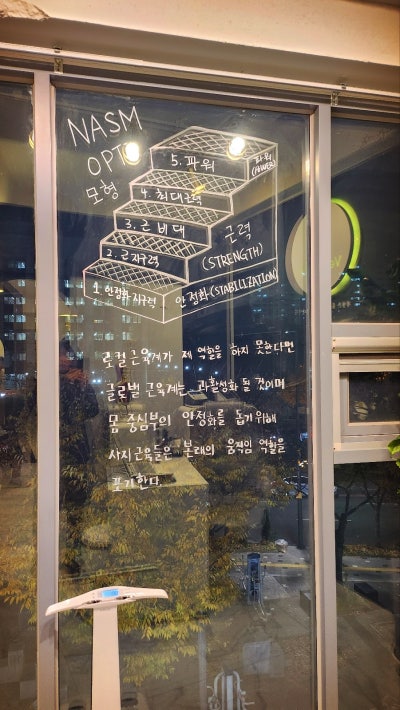 NASM
OPT
모형
5. 파워
파워
(POWER)
4. 최대근력
3. 근 비대
근력
(STRENGTH)
2. 근지구력
1. 안정화 지구력
안정화(STABILIZATION)
로컬 근육계가 제 역할을 하지 못한다면
글로벌 근육계는 과활성화 될 것이며
몸 중심부의 안정화를 돕기위해
사지근육들은 본래의 움직임 역할을
포기한다.